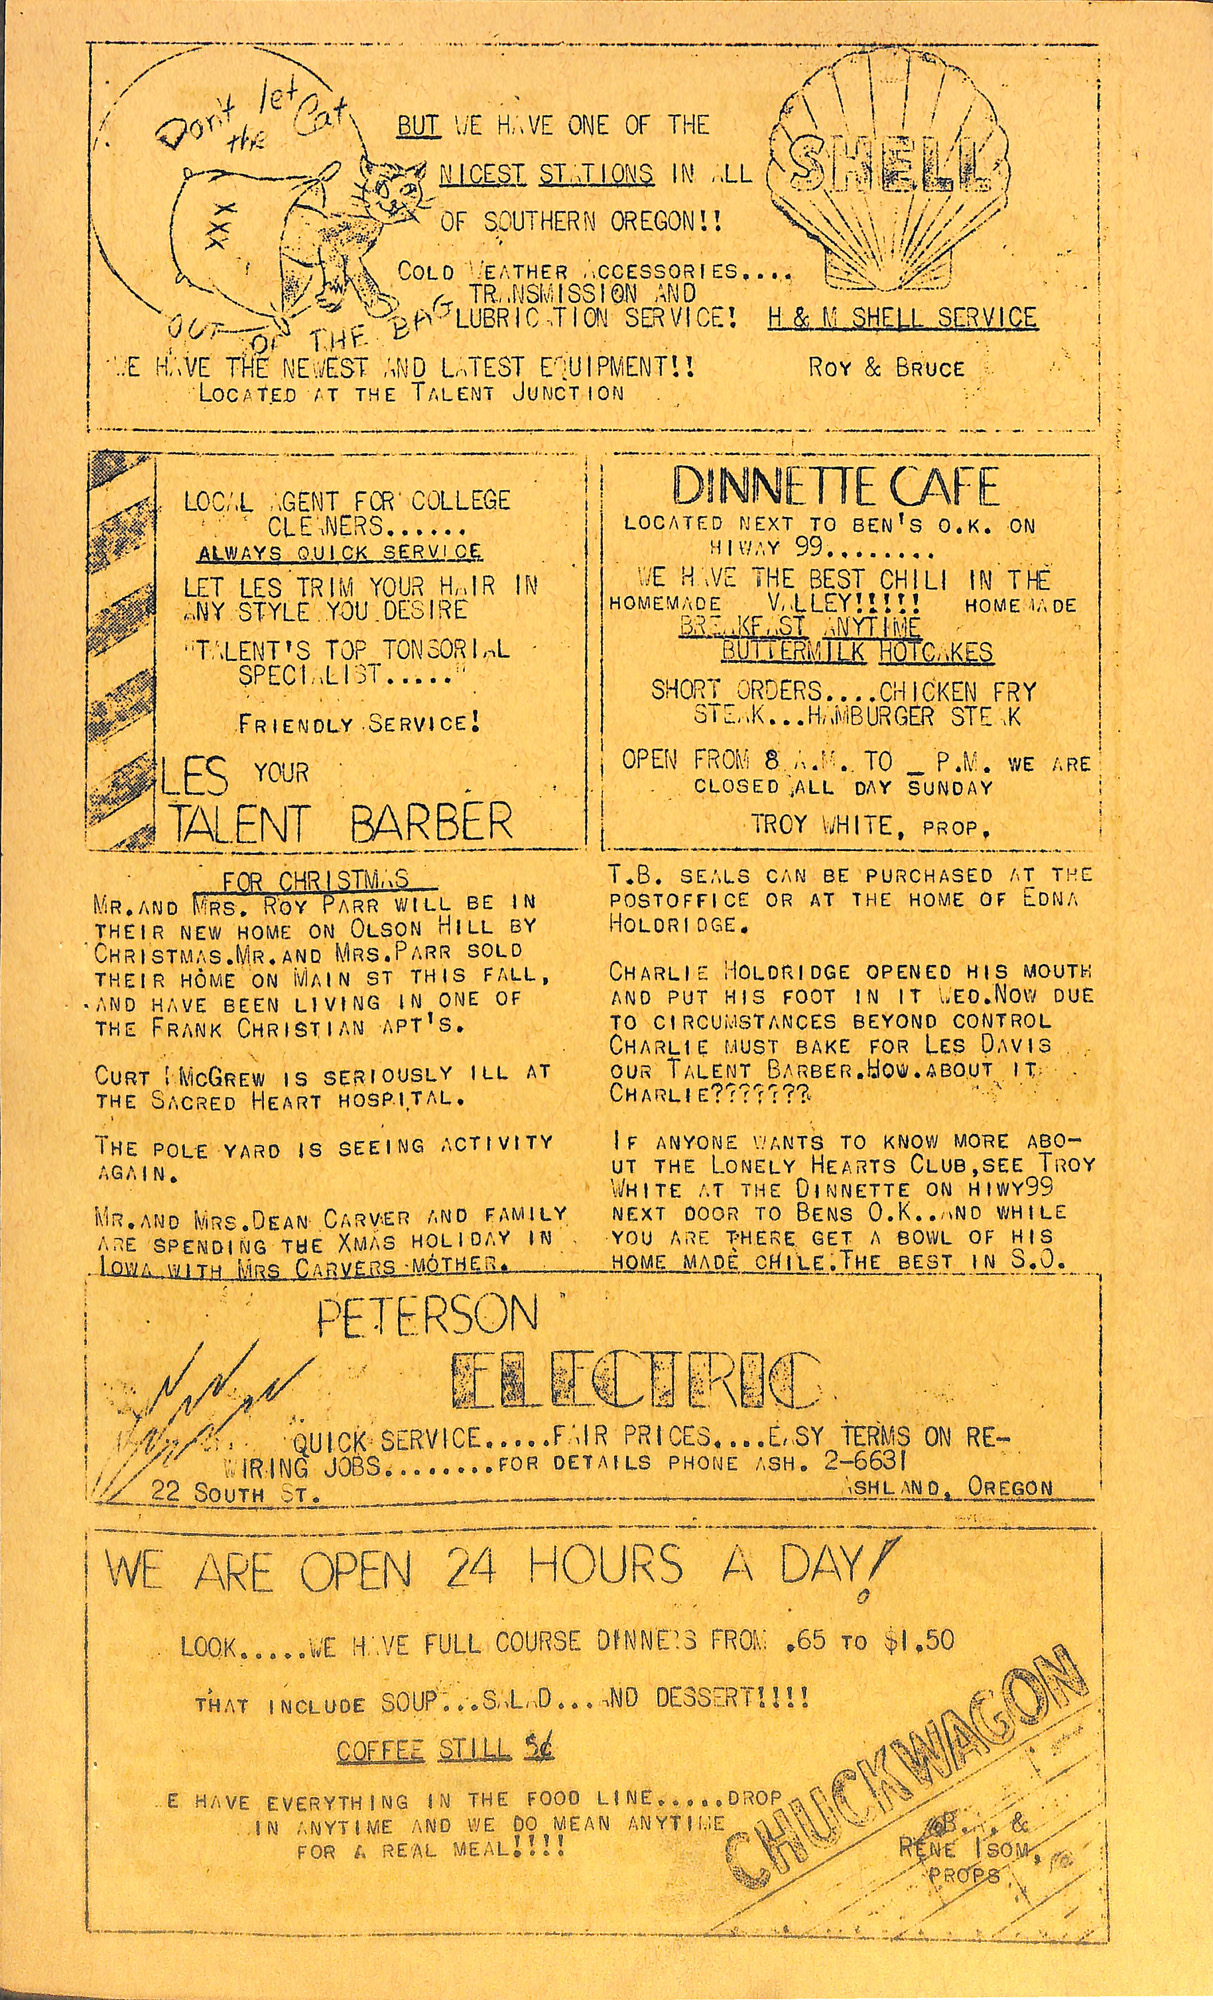 Don't let
the Cat
OUT OF THE BAG
BUT WE HAVE ONE OF THE
NICEST STATIONS IN ALL
OF SOUTHERN OREGON!!
COLD WEATHER ACCESSORIES....
TRANSMISSION AND
LUBRICATION SERVICE!
WE HAVE THE NEWEST AND LATEST EQUIPMENT!!
LOCATED AT THE TALENT JUNCTION
SHELL
H & M SHELL SERVICE
ROY & BRUCE
XXX
LOCAL AGENT FOR COLLEGE
CLEANERS......
ALWAYS QUICK SERVICE
LET LES TRIM YOUR HAIR IN
ANY STYLE YOU DESIRE
"TALENT'S TOP TONSORIAL
SPECIALIST....."
FRIENDLY SERVICE!
LES YOUR
TALENT BARBER
DINNETTE CAFE
LOCATED NEXT TO BEN'S O.K. ON
HIWAY 99........
WE HAVE THE BEST CHILI IN THE
HOMEMADE VALLEY!!!!! HOMEMADE
BREAKFAST ANYTIME
BUTTERMILK HOTCAKES
SHORT ORDERS....CHICKEN FRY
STEAK...HAMBURGER STEAK
OPEN FROM 8 A.M. TO _ P.M. WE ARE
CLOSED ALL DAY SUNDAY
TROY WHITE, PROP.
FOR CHRISTMAS
MR.AND MRS. ROY PARR WILL BE IN
THEIR NEW HOME ON OLSON HILL BY
CHRISTMAS.MR.AND MRS.PARR SOLD
THEIR HOME ON MAIN ST THIS FALL,
AND HAVE BEEN LIVING IN ONE OF
THE FRANK CHRISTIAN APT'S.
CURT McGREW IS SERIOUSLY ILL AT
THE SACRED HEART HOSPITAL.
THE POLE YARD IS SEEING ACTIVITY
AGAIN.
MR.AND MRS.DEAN CARVER AND FAMILY
ARE SPENDING THE XMAS HOLIDAY IN
IOWA WITH MRS CARVERS MOTHER.
T.B. SEALS CAN BE PURCHASED AT THE
POSTOFFICE OR AT THE HOME OF EDNA
HOLDRIDGE.
CHARLIE HOLDRIDGE OPENED HIS MOUTH
AND PUT HIS FOOT IN IT WED.NOW DUE
TO CIRCUMSTANCES BEYOND CONTROL
CHARLIE MUST BAKE FOR LES DAVIS
OUR TALENT BARBER.HOW.ABOUT IT
CHARLIE???????
IF ANYONE WANTS TO KNOW MORE ABO-
UT THE LONELY HEARTS CLUB,SEE TROY
WHITE AT THE DINNETTE ON HIWY99
NEXT DOOR TO BENS O.K..AND WHILE
YOU ARE THERE GET A BOWL OF HIS
HOME MADE CHILE.THE BEST IN S.O.
PETERSON
ELECTRIC
QUICK SERVICE.....FAIR PRICES....EASY TERMS ON RE-
WIRING JOBS........FOR DETAILS PHONE ASH. 2-6631
22 SOUTH ST. ASHLAND, OREGON
WE ARE OPEN 24 HOURS A DAY!
LOOK.....WE HAVE FULL COURSE DINNERS FROM .65 TO $1.50
THAT INCLUDE SOUP...SALAD...AND DESSERT!!!!
COFFEE STILL 5¢
WE HAVE EVERYTHING IN THE FOOD LINE.....DROP
IN ANYTIME AND WE DO MEAN ANYTIME
FOR A REAL MEAL!!!!
CHUCKWAGON
&
RENE ISOM,
PROPS